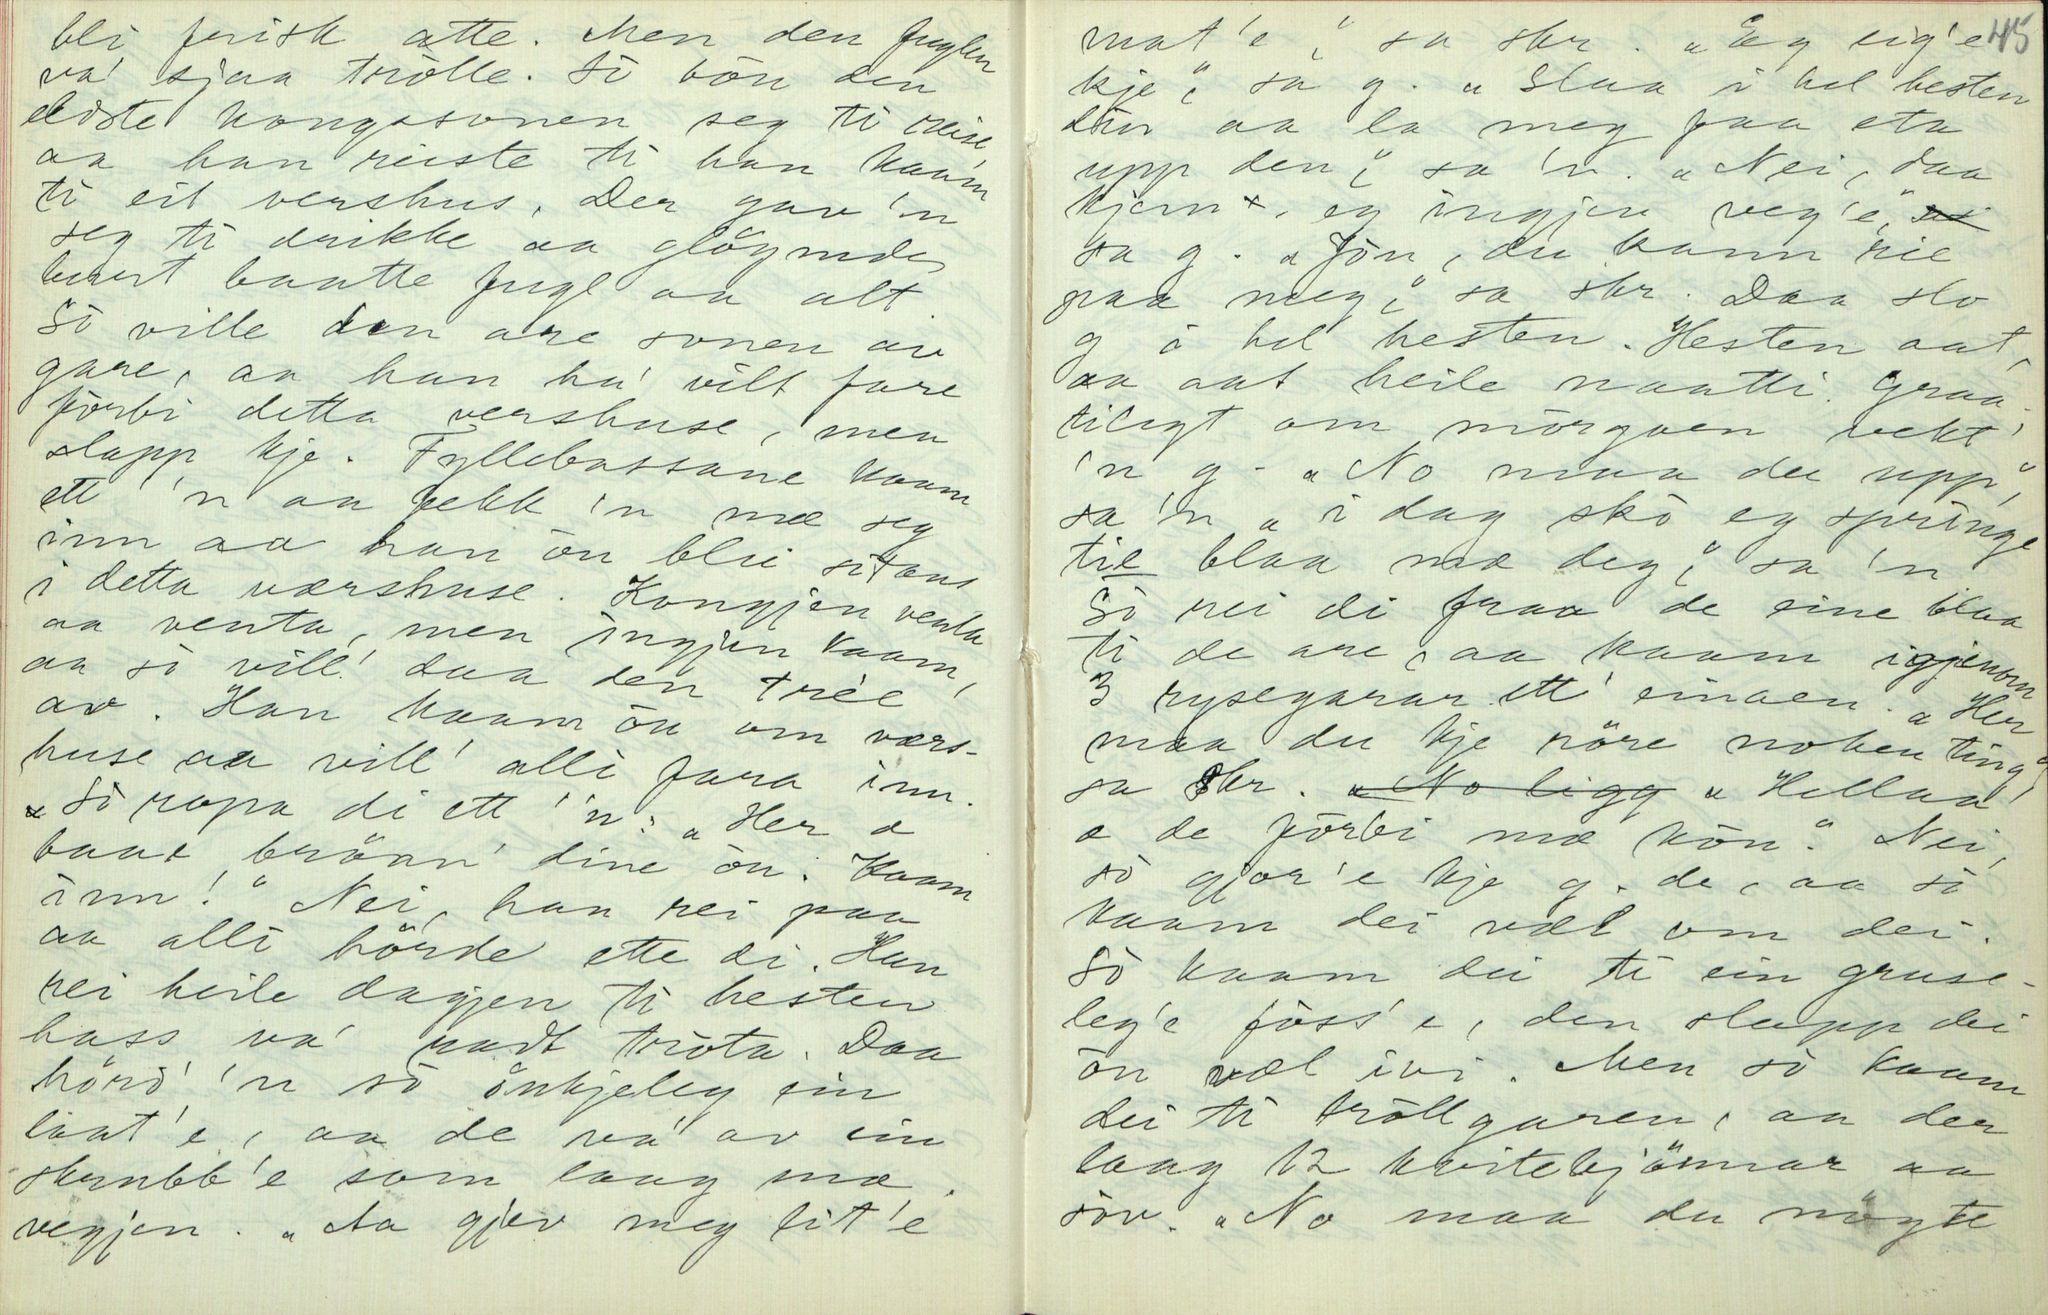 bli frisk atte. Men den fuglen
va' sjaa trolle. Sò bön den
eldste kongssonen seg ti reise,
aa han reiste ti han kaam
ti eit vershus. Der gav 'n
seg ti drikke aa glöymde
burt baatte fugl aa alt
Sò ville den are sonen av
gare, aa han ha' vilt fare
förbi detta vershuse, men
slapp kje. Fyllebassane kaam
ett 'n aa fekk 'n mæ seg
inn aa han òn blei sitans
i detta værshuse. Kongjen venta
aa venta, men ingjen kaam,
aa sò vill' daa den tree
av. Han kaam òn om værs-
huse aa vill' alli fara inn.
Sò ropa di ett 'n: „Her æ
baae brönn' dine òn. Kaam
inn!" Nei, han rei paa
aa alli hörde ette di. Han
rei heile dagjen ti hesten
hass va' radt tròta. Daa
hörd' 'n sò önkjeleg ein
laat'e, aa de va' av ein
skrubb'e som laag mæ
vegjen. „Aa gjev meg lit'e
45
mat'e", sa skr. „Eg eig'e
kje", sa g. „Slaa i hel hesten
din aa la meg faa eta
upp den", sa 'n. „Nei, daa
kjem eg ingjen veg'e",
sa g. „Jön, du kann rie
paa meg", sa skr. Daa slo
g i hel hesten. Hesten aat,
aa aat heile naatti. Graa-
tilegt om mòrgoen vekt'
'n g. „No maa du upp",
sa 'n „i dag skò eg springe
til blaa mæ deg", sa 'n
Sò rei di fraa de eine blaa
ti de are, aa kaam igjenom
3 rysegarar ett' einaen. „Her
maa du kje röre noken ting"
sa skr. „No ligg „Hellaa
æ de förbi mæ kön". Nei,
sò gjor'e kje g. de, aa sò
kaam dei væl om dei.
Sò kaam dei ti ein gruse-
leg'e föss'e, den slapp dei
òn væl ivi. Men sò kaam
dei ti tröllgaren, aa der
laag 12 kvitebjönnar aa
söv. „No maa du nöyte